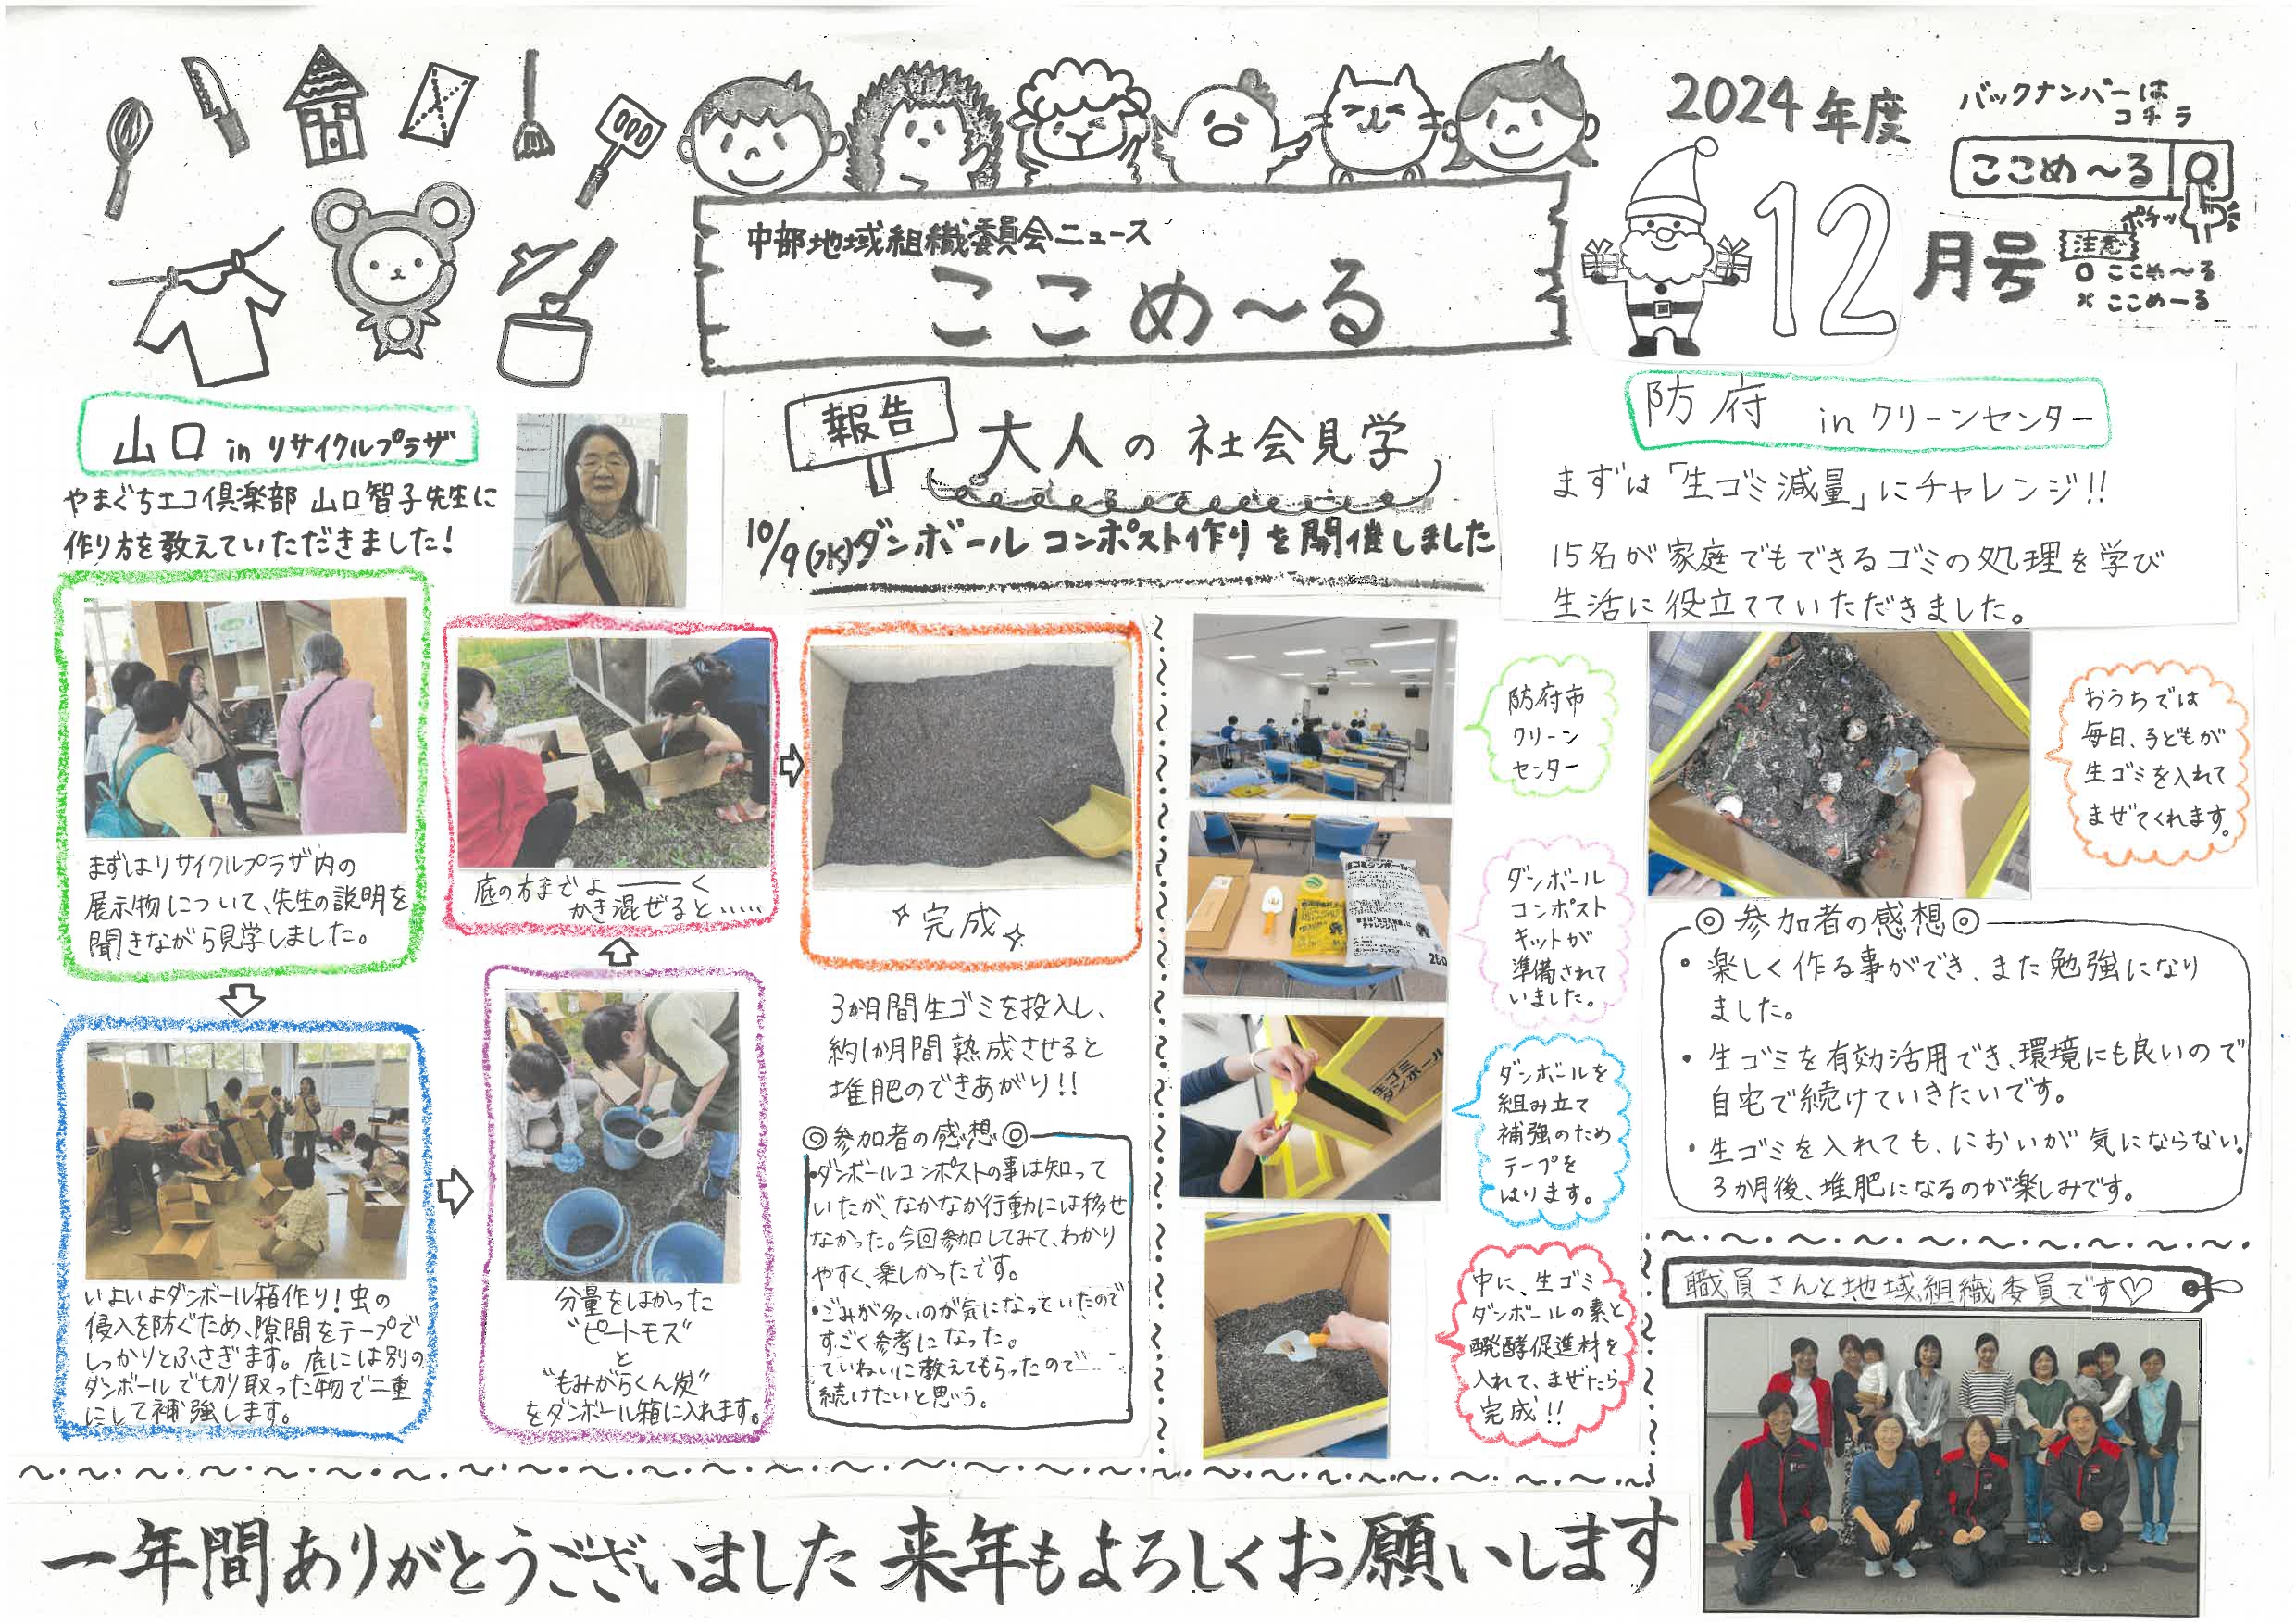 2024年度
12月号
バックナンバーは
コチラ
ここめ〜る
ポチッ
注意
○ ここめ〜る
× ここめーる
中部地域組織委員会ニュース
ここめ〜る
報告
大人の社会見学
10/9(水)ダンボールコンポスト作りを開催しました
山口 in リサイクルプラザ
やまぐちエコ倶楽部 山口智子先生に
作り方を教えていただきました!
まずはリサイクルプラザ内の
展示物について、先生の説明を
聞きながら見学しました。
いよいよダンボール箱作り!虫の
侵入を防ぐため、隙間をテープで
しっかりとふさぎます。底には別の
ダンボールで切り取った物で二重
にして補強します。
分量をはかった
"ピートモス"
と
"もみがらくん炭"
をダンボール箱に入れます。
底の方までよーく
かき混ぜると……
完成
3か月間生ゴミを投入し、
約1か月間熟成させると
堆肥のできあがり!!
◎参加者の感想◎
・ダンボールコンポストの事は知って
いたが、なかなか行動には移せ
なかった。今回参加してみて、わかり
やすく、楽しかったです。
・ごみが多いのが気になっていたので
すごく参考になった。
ていねいに教えてもらったので
続けたいと思う。
防府 in クリーンセンター
まずは「生ゴミ減量」にチャレンジ!!
15名が家庭でもできるゴミの処理を学び
生活に役立てていただきました。
防府市
クリーン
センター
ダンボール
コンポスト
キットが
準備されて
いました。
ダンボールを
組み立て
補強のため
テープを
はります。
生ゴミ
ダンボール
中に、生ゴミ
ダンボールの素と
醗酵促進材を
入れて、まぜたら
完成!!
おうちでは
毎日、子どもが
生ゴミを入れて
まぜてくれます。
◎参加者の感想◎
・楽しく作る事ができ、また勉強になり
ました。
・生ゴミを有効活用でき、環境にも良いので
自宅で続けていきたいです。
・生ゴミを入れても、においが気にならない。
3か月後、堆肥になるのが楽しみです。
職員さんと地域組織委員です♡
一年間ありがとうございました 来年もよろしくお願いします